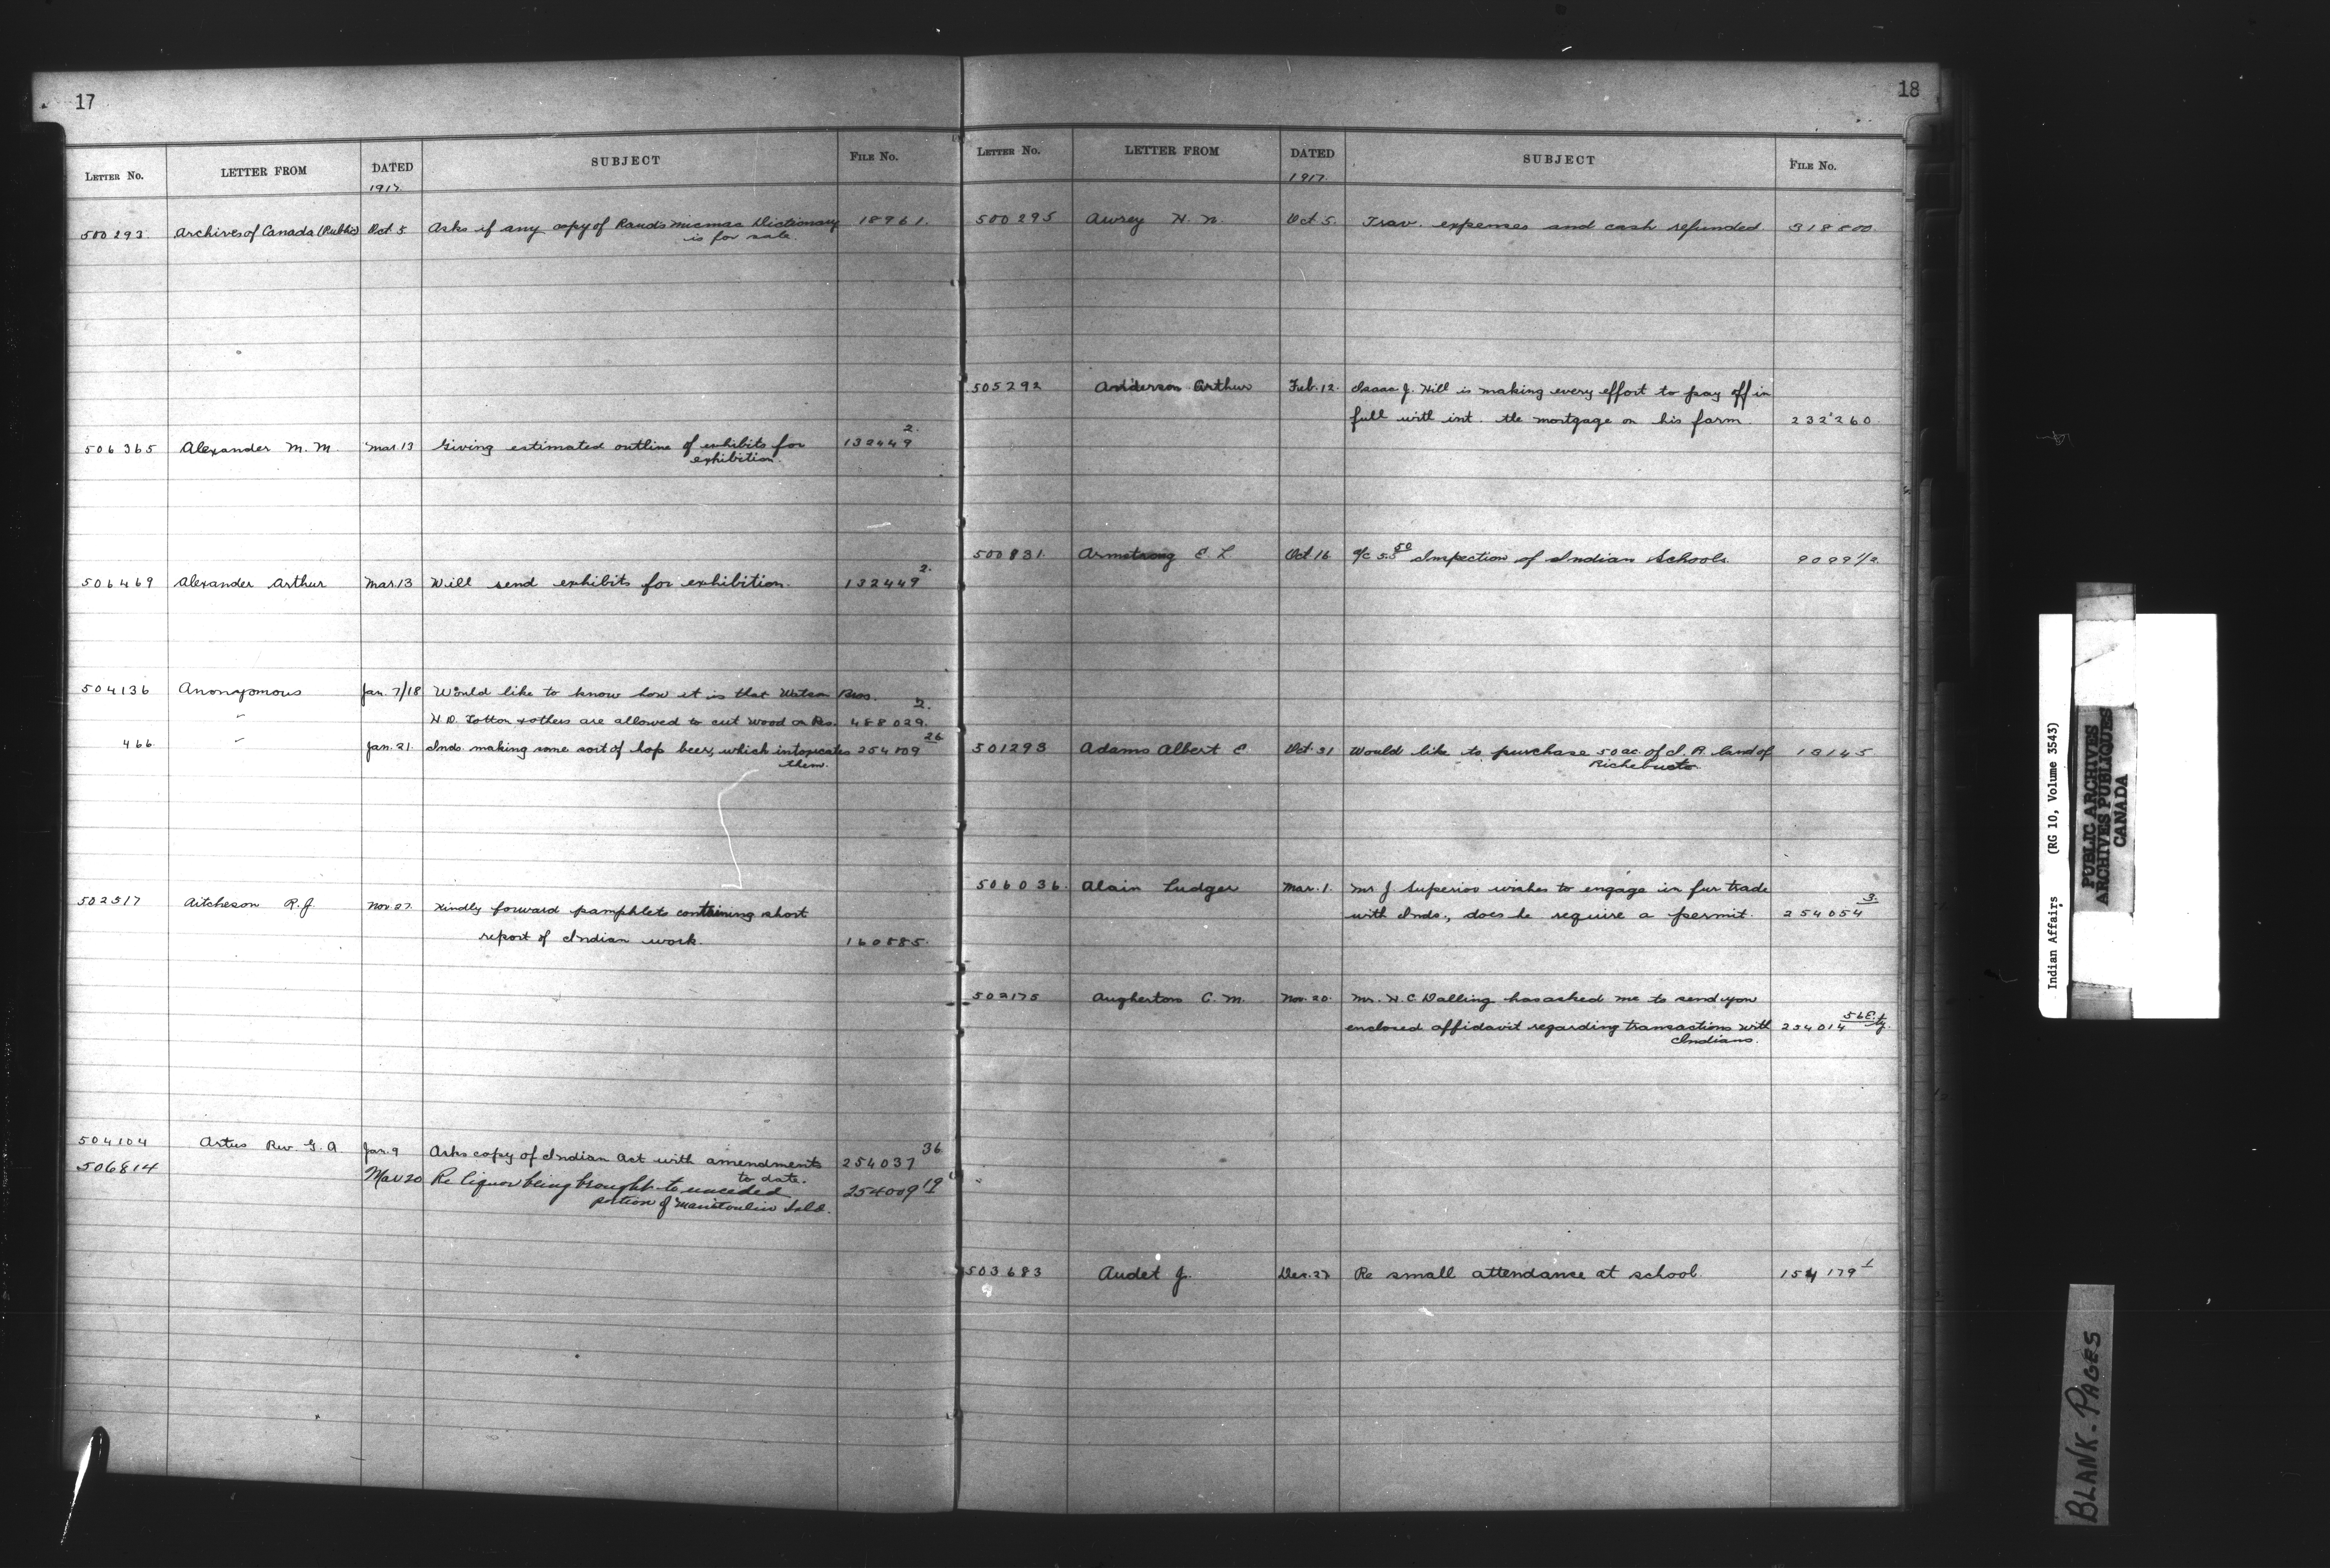 17
LETTER NO. LETTER FROM DATED SUBJECT FILE No.
1917.
500293. Archives of Canada (Public) Oct 5 Asks if any copy of Rand's Micmac Dictionary 18961.
is for sale.
506365 Alexander M. M. Mar.13 Giving estimated outline of exhibits for 132449 2.
exhibition.
506469 Alexander Arthur Mar.13 Will send exhibits for exhibition. 132449 2.
504136 Anonymous Jan. 7/18 Would like to know how it is that Watson Bros.
" H. D. Totton & others are allowed to cut wood on Res. 488029. 2.
466. " Jan. 21. Inds. making some sort of hop beer, which intoxicates 254109 26
them.
502517 Aitcheson R. J. Nov 27. Kindly forward pamphlets containing short
report of Indian work. 160585.
504104 Artus Rev. G. A. Jan. 9 Asks copy of Indian Act with amendments 254037 36
to date.
506814 Mar 20 Re liquor being brought to unceded 254009 19
portion of Manitoulin Isld.
18
LETTER NO. LETTER FROM DATED SUBJECT FILE No.
1917.
500295 Awrey H. N. Oct 5. Trav. expenses and cash refunded 318800.
505292 Anderson Arthur Feb. 12. Isaac J. Hill is making every effort to pay off in
full with int. the mortgage on his farm. 232260.
500831 Armstrong E L Oct 16 a/c 5.50 Inspection of Indian Schools. 9099 1/2.
501293 Adams Albert E. Oct. 31 Would like to purchase 50 ac. of I. R. land of 13145
Richebucto.
506036. Alain Ludger Mar. 1. Mr J. Superior wishes to engage in fur trade
with Inds., does he require a permit. 254054 3.
502175 Aughertons C. M. Nov. 20. Mr. H. C. Dalling has asked me to send you
enclosed affidavit regarding transactions with 254014 56E.
Indians.
503683 Audet J. Dec. 27 Re small attendance at school. 154179 1
Indian Affairs (RG 10, Volume 3543)
PUBLIC ARCHIVES
ARCHIVES PUBLIQUES
CANADA
BLANK. PAGES